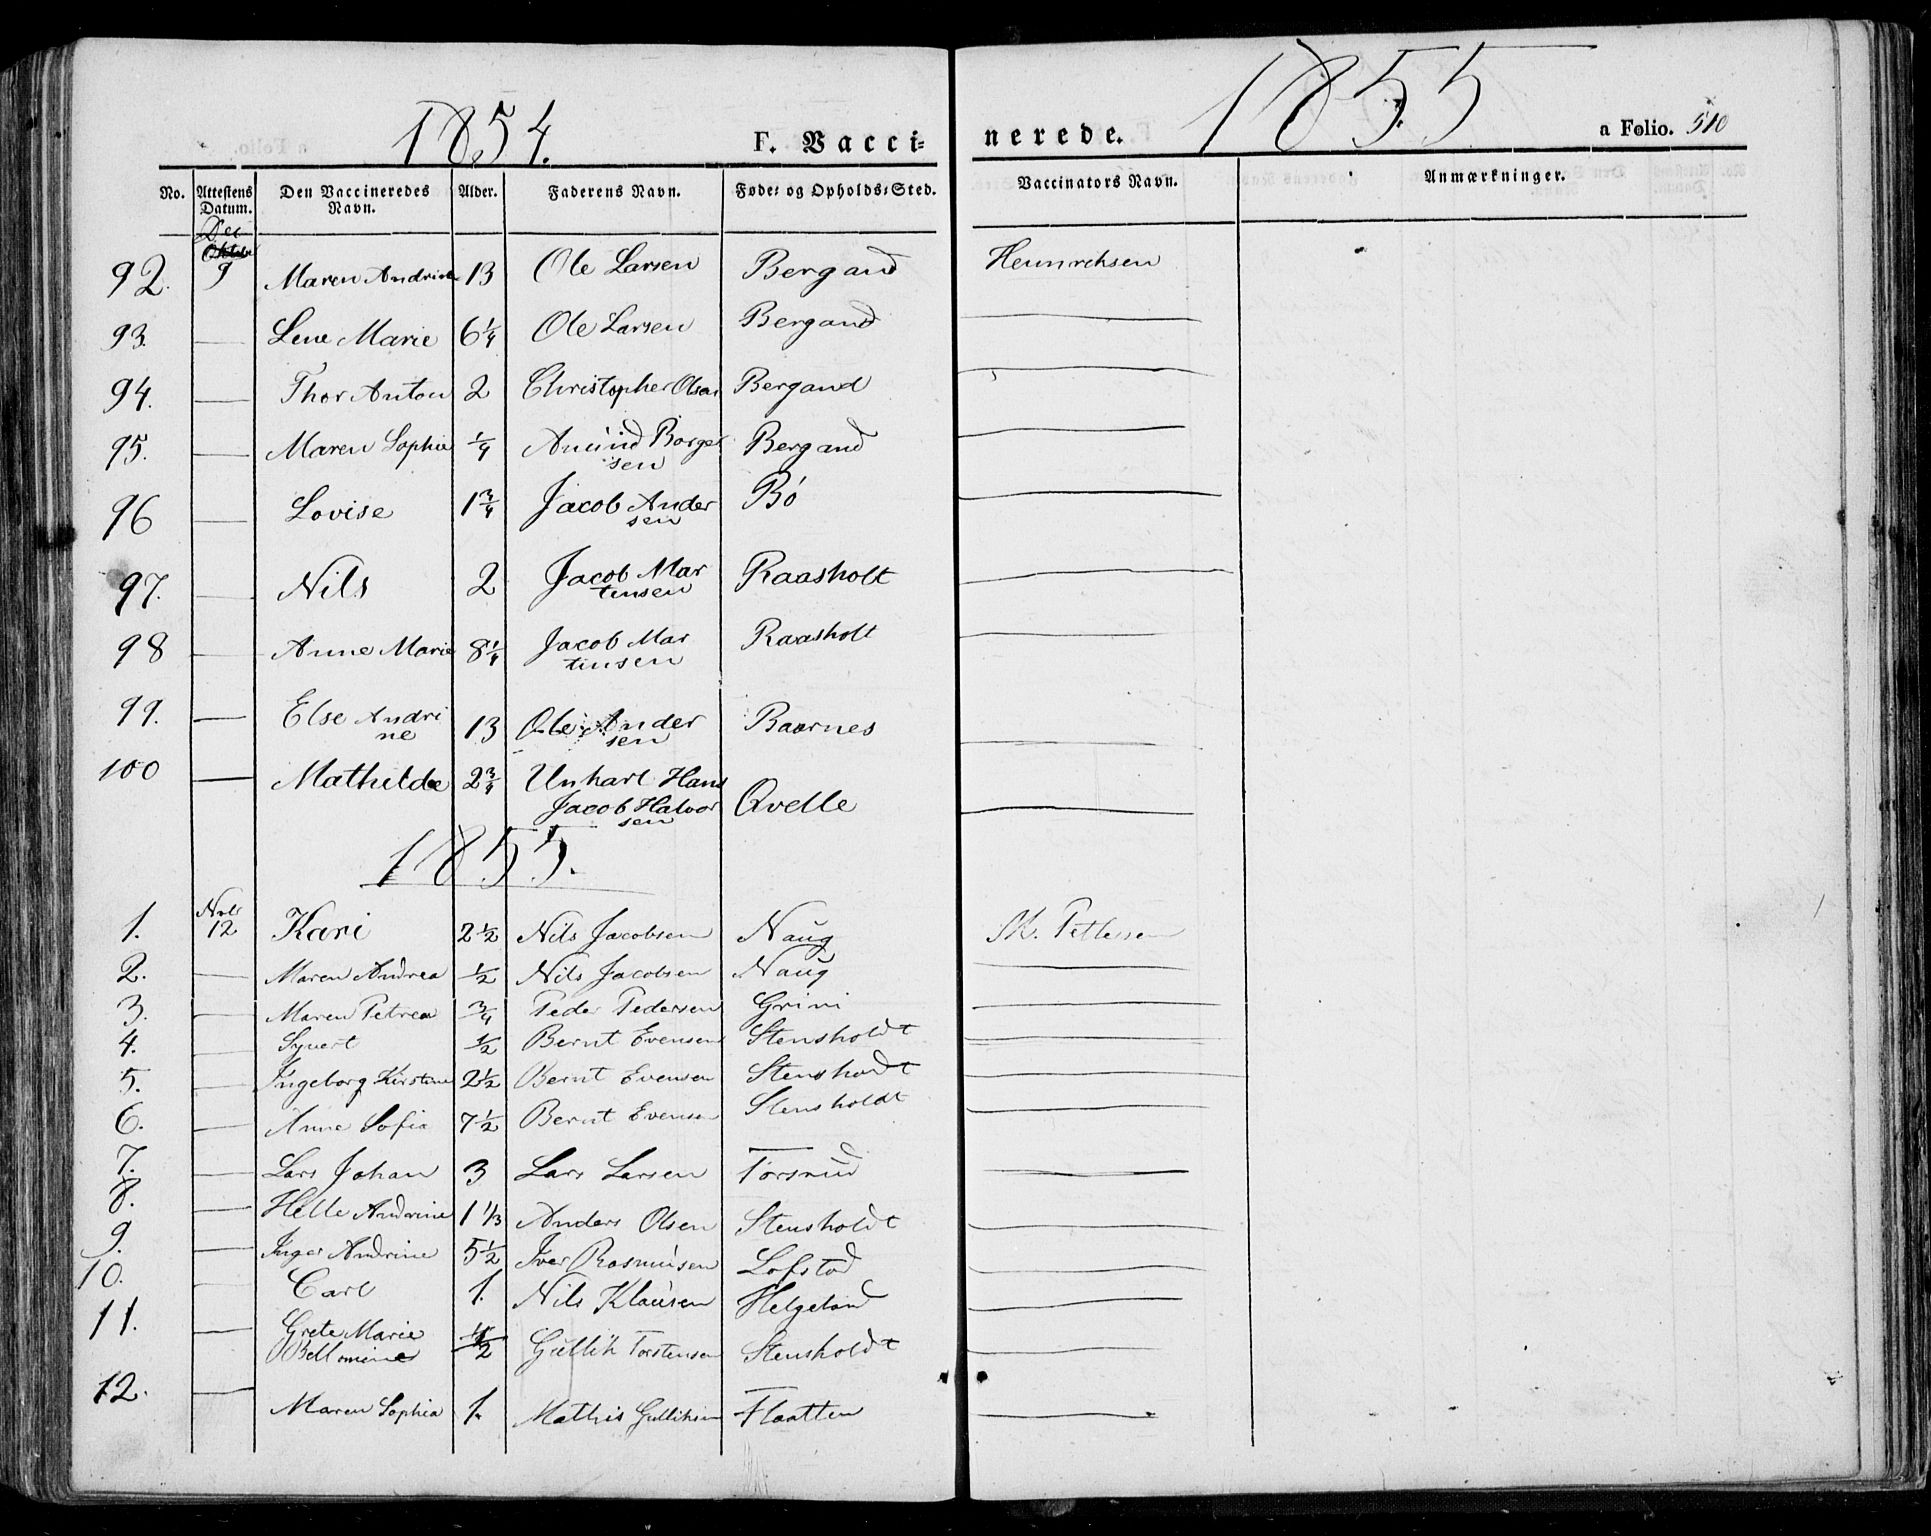 1854. F. Vacci= nerede. 1855 a Folio. 510
No. Attestens Datum. Den Vaccineredes Navn. Alder. Faderens Navn. Føde= og Opholds=Sted. Vaccinators Navn. Anmærkninger.
Dec
92. 9 Maren Andrine 13 Ole Larsen Bergand Heinrichsen
93. — Lene Marie 6 1/4 Ole Larsen Bergand —
94. — Thor Anton 2 Christopher Olsen Bergand —
95. — Maren Sophie 1/4 Amund Borger Bergand —
sen
96 — Lovise 1 3/4 Jacob Ander Bö —
sen
97. — Nils 2 Jacob Mar Raasholt —
tinsen
98 — Anne Marie 8 1/4 Jacob Mar Raasholt —
tinsen
99. — Else Andri 13 Ole Ander Baarnes —
ne sen
100 — Mathilde 2 3/4 Hans
Jacob Halvor Qvelle —
sen
1855.
1. 12 Kari 2 1/2 Nils Jacobsen Naug Pettersen
2. — Maren Andrea 1/2 Nils Jacobsen Naug —
3. — Maren Petrea 3/4 Peder Pedersen Grini —
4. — Syvert 1/2 Bernt Evensen Stensholdt —
5. — Ingeborg Kirstine 2 1/2 Bernt Evensen Stensholdt —
6. — Anne Sofia 7 1/2 Bernt Evensen Stensholdt —
7. — Lars Johan 3 Lars Larsen Torsrud —
8. — Helle Andrine 1 1/3 Anders Olsen Stensholdt —
9. — Inger Andrine 5 1/2 Iver Rasmusen Lofstad —
10. — Carl 1. Nils Klausen Helgeland —
11. — Grete Marie 1/2 Gullik Torstensen Stensholdt —
12. — Maren Sophia 1. Mathis Gulliksen Flaatten —